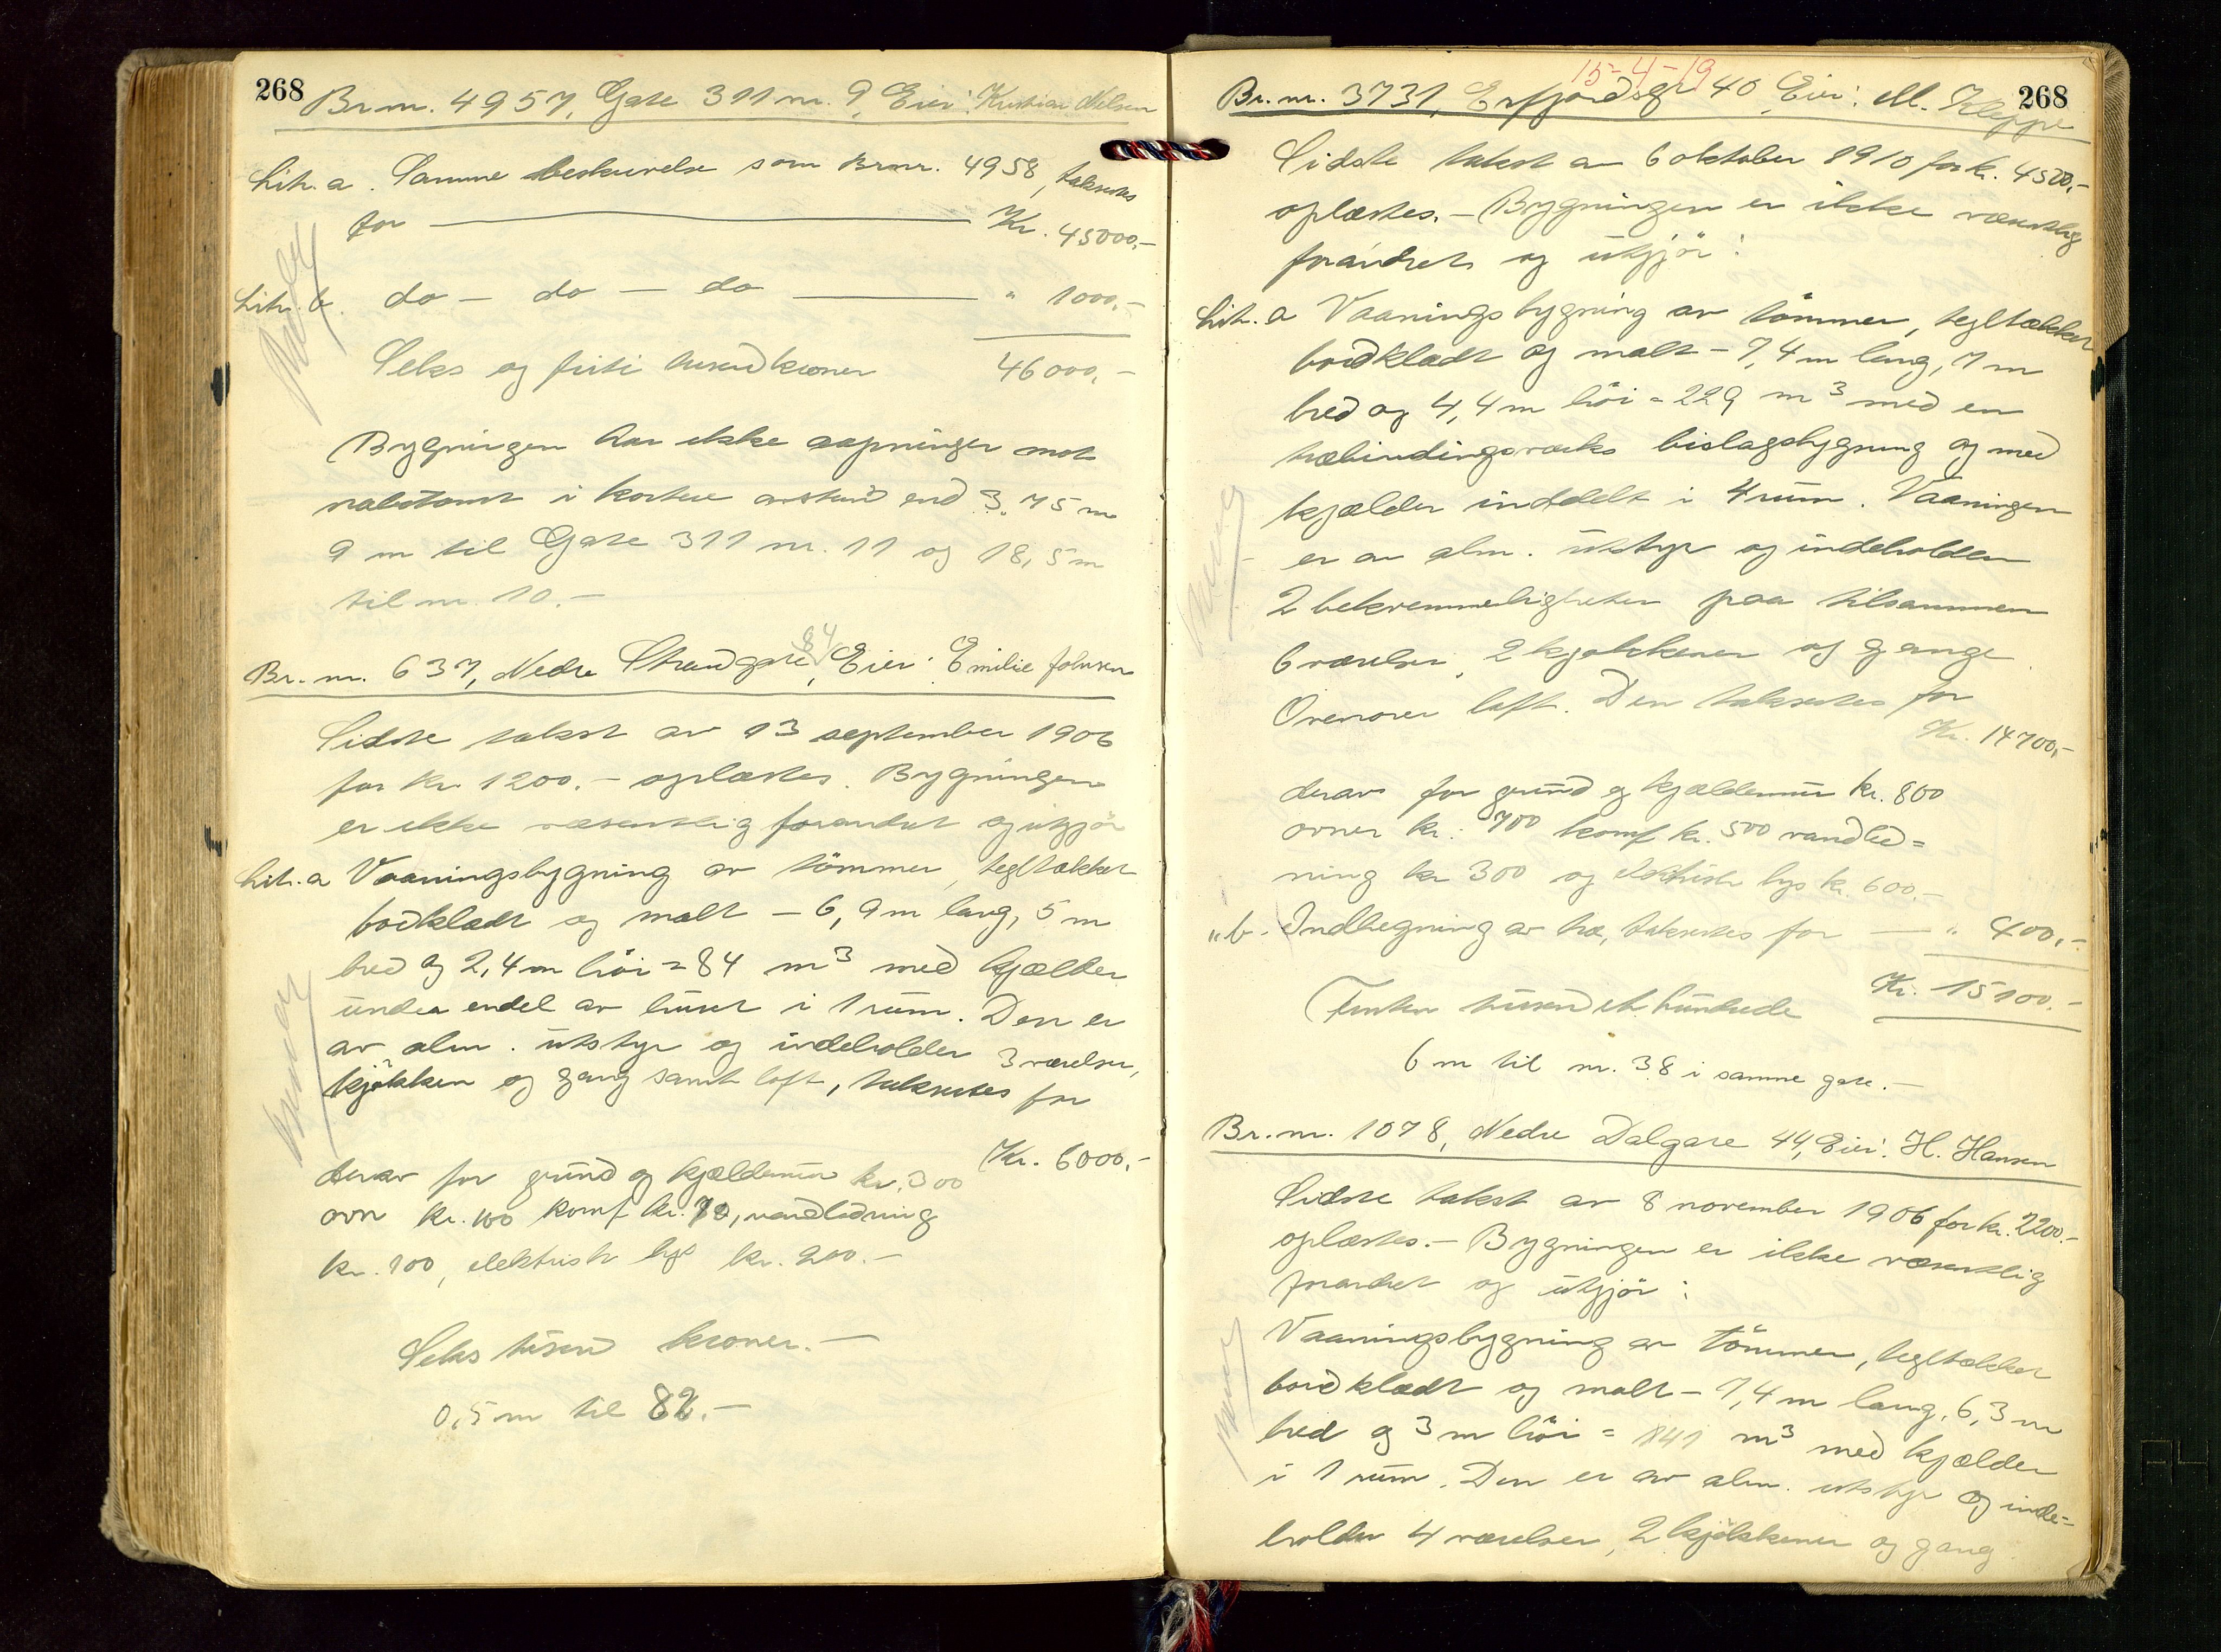 268
Br. nr. 4957, Gate 311 nr. 9, Eier: Kristian Nilsen
Litr. a. Samme beskrivelse som Brnr. 4958, takseres
for Kr. 45000,-
Litr. b. do - do - do " 1000,-
Seks og firti tusen kroner 46000,-
Bygningen har ikke aapninger mot
nabotomt i kortere avstand end 3,75 m
9 m til Gate 311 nr. 11 og 18,5 m
til nr. 10.-
Br. nr. 637, Nedre Strandgate 84, Eier: Emilie Johnsen
Sidste takst av 13 september 1906
for kr. 1200.- oplæstes. Bygningen
er ikke væsentlig forandret og utgjör
Litr. a Vaaningsbygning av tömmer, tegltækket
bordklædt og malt - 6,9 m lang, 5 m
bred og 2,4 m höi = 84 m³ med kjælder
under endel av huset i 1 rum. Den er
av alm. utstyr og indeholder 3 værelser,
kjökken og gang samt loft, takseres for
Kr. 6000,-
derav for grund og kjældermur kr. 300
ovn kr. 100 komf kr. 70, vandledning
kr. 100, elektrisk lys kr. 200.-
Seks tusen kroner.-
0,5 m til 82.-
15-4-19
268
Br. nr. 3731, Erfjordsgt 40, Eier: M. Kleppe
Sidste takst av 6 oktober 1910 for kr. 4500,-
oplæstes. - Bygningen er ikke væsentlig
forandret og utgjör:
Litr. a Vaaningsbygning av tömmer, tegltækket
bordklædt og malt - 7,4 m lang, 7 m
bred og 4,4 m höi = 229 m³ med en
træbindingsverks bislagsbygning og med
kjælder inddelt i 4 rum. Vaaningen
er av alm. utstyr og indeholder
2 bekvemmeligheter paa tilsammen
6 værelser, 2 kjökkener og gange.
Ovenover loft. Den takseres for
Kr. 14700,-
derav for grund og kjældermur kr. 800
ovner kr. 700 komf kr. 500 vandled=
ning kr 300 og elektrisk lys kr. 600.-
" b. Indhegning av træ, takseres for " 400,-
Femten tusen et hundrede Kr. 15100,-
6 m til nr. 38 i samme gate.-
Br. nr. 1078, Nedre Dalgate 44, Eier: H. Hansen
Sidste takst av 8 november 1906 for kr. 2200.-
oplæstes.- Bygningen er ikke væsentlig
forandret og utgjör:
Vaaningsbygning av tömmer, tegltækket
bordklædt og malt - 7,4 m lang, 6,3 m
bred og 3 m höi = 141 m³ med kjælder
i 1 rum. Den er av alm. utstyr og inde=
holder 4 værelser, 2 kjökkener og gang